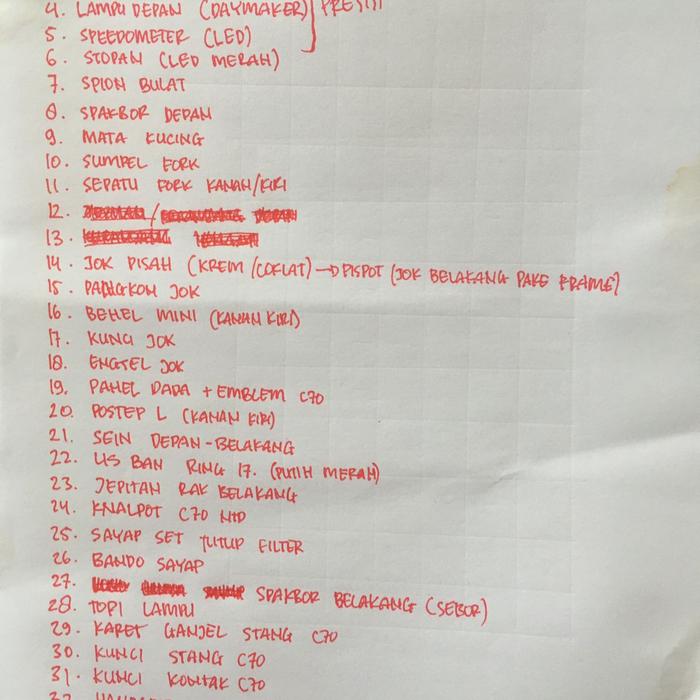 4. LAMPU DEPAN (DAYMAKER) PRESISI
5. SPEEDOMETER (LED)
6. STOPAN (LED MERAH)
7. SPION BULAT
8. SPAKBOR DEPAN
9. MATA KUCING
10. SUMPEL FORK
11. SEPATU FORK KANAN/KIRI
12.
13.
14. JOK PISAH (KREIM/COKLAT) → PISPOT (JOK BELAKANG PAKE FRAME)
15. PANGKON JOK
16. BEHEL MINI (KANAN KIRI)
17. KUNCI JOK
18. ENGSEL JOK
19. PANEL DADA + EMBLEM C70
20. POSTEP L (KANAN KIRI)
21. SEIN DEPAN-BELAKANG
22. LIS BAN RING 17. (PUTIH MERAH)
23. JEPITAN RAK BELAKANG
24. KNALPOT C70 NTD
25. SAYAP SET TUTUP FILTER
26. BANDO SAYAP
27. SPAKBOR BELAKANG (SEBOR)
28. TOPI LAMPU
29. KARET GANJEL STANG C70
30. KUNCI STANG C70
31. KUNCI KONTAK C70